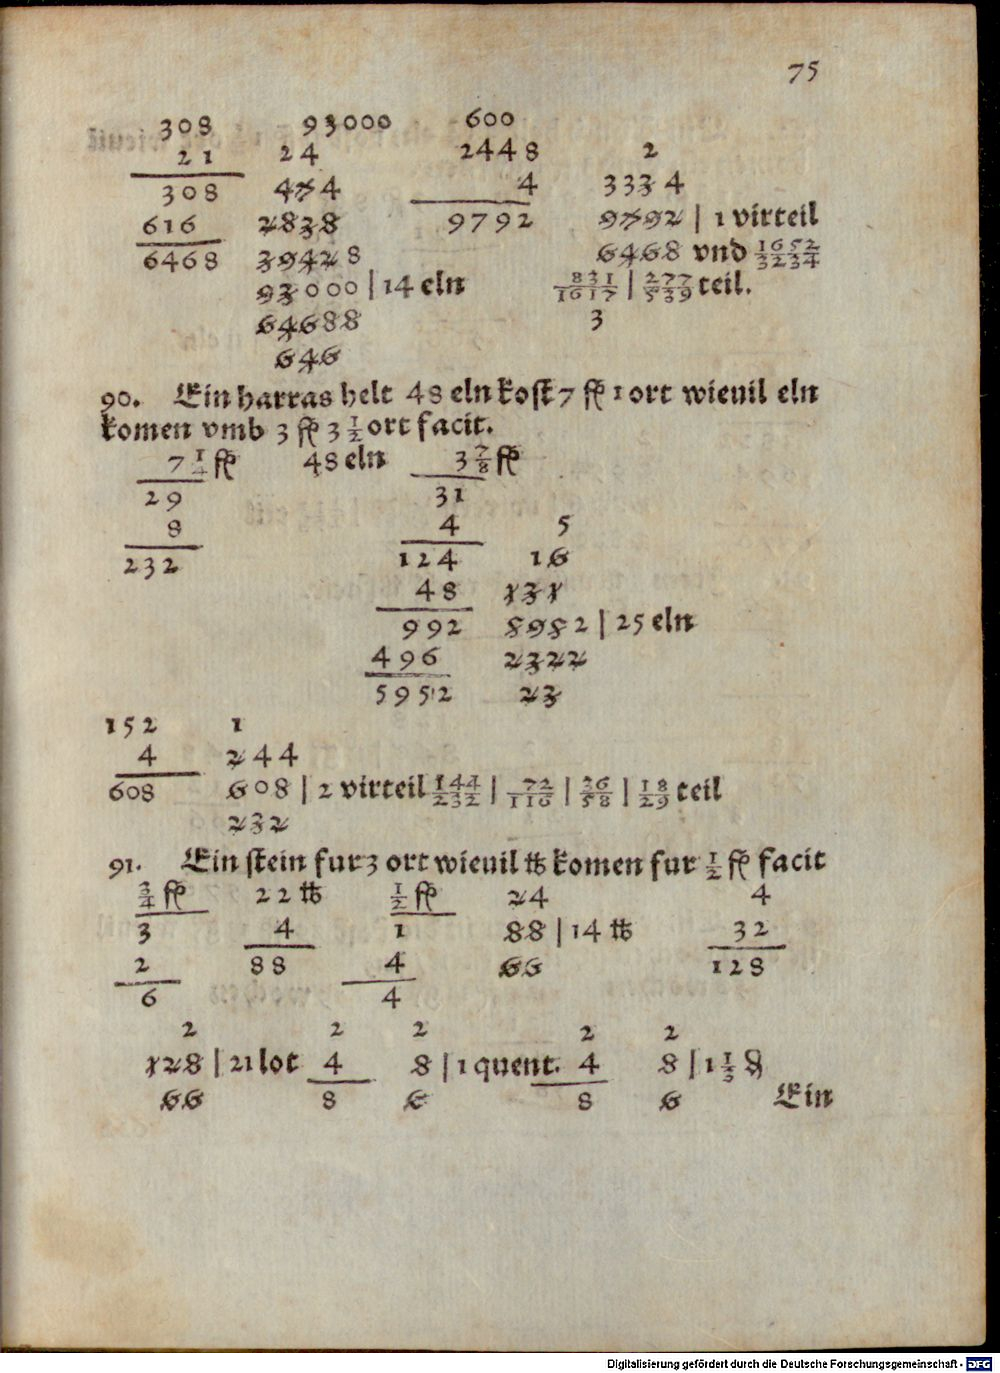 75
308 93000 600
21 24 2448 2
308 474 4 3334
616 2838 9792 9792 | 1 virteil
6468 39428 6468 vnd 1652/3234
93000 | 14 eln 831/1617 | 277/539 teil.
64688 3
646
90. Ein harras helt 48 eln kost 7 fl 1 ort wieuil eln
komen vmb 3 fl 3 1/2 ort facit.
7 1/4 fl 48 eln 3 7/8 fl
29 31
8 4 5
232 124 16
48 131
992 8982 | 25 eln
496 2322
5952 23
152 1
4 244
608 608 | 2 virteil 144/232 | 72/116 | 36/58 | 18/29 teil
232
91. Ein stein fur 3 ort wieuil ℔ komen fur 1/2 fl facit
3/4 fl 22 ℔ 1/2 fl 24 4
3 4 1 88 | 14 ℔ 32
2 88 4 66 128
6 4
2 2 2 2 2
128 | 21 lot 4 8 | 1 quent. 4 8 | 1 1/3 ₰
66 8 6 8 6 Ein
Digitalisierung gefördert durch die Deutsche Forschungsgemeinschaft - DFG